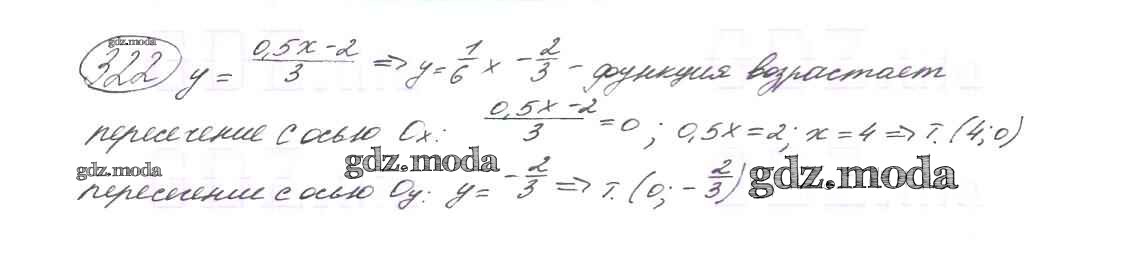 gdz.moda
322 y = (0,5x - 2)/3 => y = 1/6 x - 2/3 - функция возрастает
пересечение с осью Ox: (0,5x - 2)/3 = 0; 0,5x = 2; x = 4 => т. (4; 0)
gdz.moda gdz.moda gdz.moda
пересечение с осью Oy: y = - 2/3 => т. (0; - 2/3)